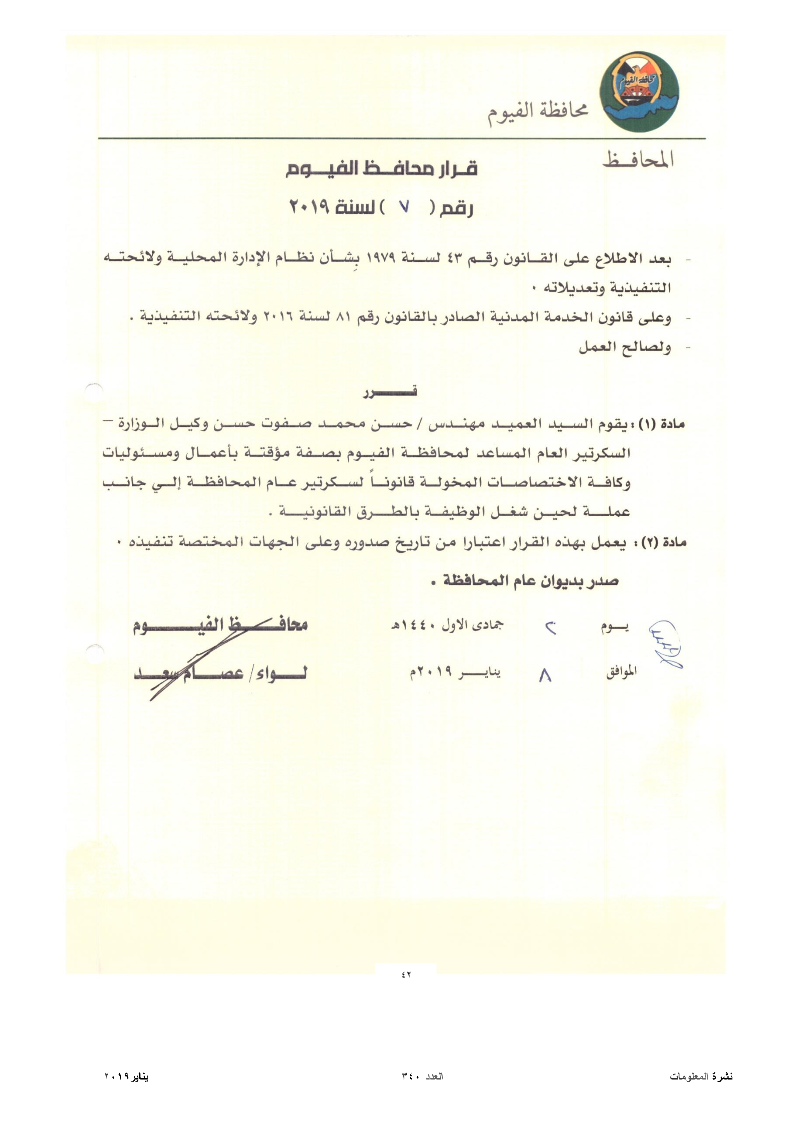 محافظة الفيوم
المحافـظ
قـرار محافـظ الفيـوم
رقم ( ٧ ) لسنة ٢٠١٩
- بعد الاطلاع على القـانون رقـم ٤٣ لسـنة ١٩٧٩ بِشـأن نظـام الإدارة المحليـة ولائحتـه
التنفيذية وتعديلاته ٠
- وعلى قانون الخدمة المدنية الصادر بالقانون رقم ٨١ لسنة ٢٠١٦ ولائحته التنفيذية .
- ولصالح العمل
قـــرر
مادة (١) : يقوم السـيد العميـد مهنـدس / حسـن محمـد صـفوت حسـن وكيـل الـوزارة –
السكرتير العام المساعد لمحافظـة الفيـوم بصـفة مؤقتـة بأعمـال ومسـئوليات
وكافـة الاختصاصـات المخولـة قانونـاً لسـكرتير عـام المحافظـة إلـي جانـب
عملـة لحيـن شغـل الوظيفـة بالطـرق القانونيـة .
مادة (٢) : يعمل بهذه القرار اعتبارا من تاريخ صدوره وعلى الجهات المختصة تنفيذه ٠
صدر بديوان عام المحافظة .
يـوم ٢ جمادى الاول ١٤٤٠هـ
الموافق ٨ ينايـر ٢٠١٩م
محافـظ الفيـوم
لـواء/ عصـام سعـد
٤٢
نشرة المعلومات العدد ٣٤٠ يناير ٢٠١٩